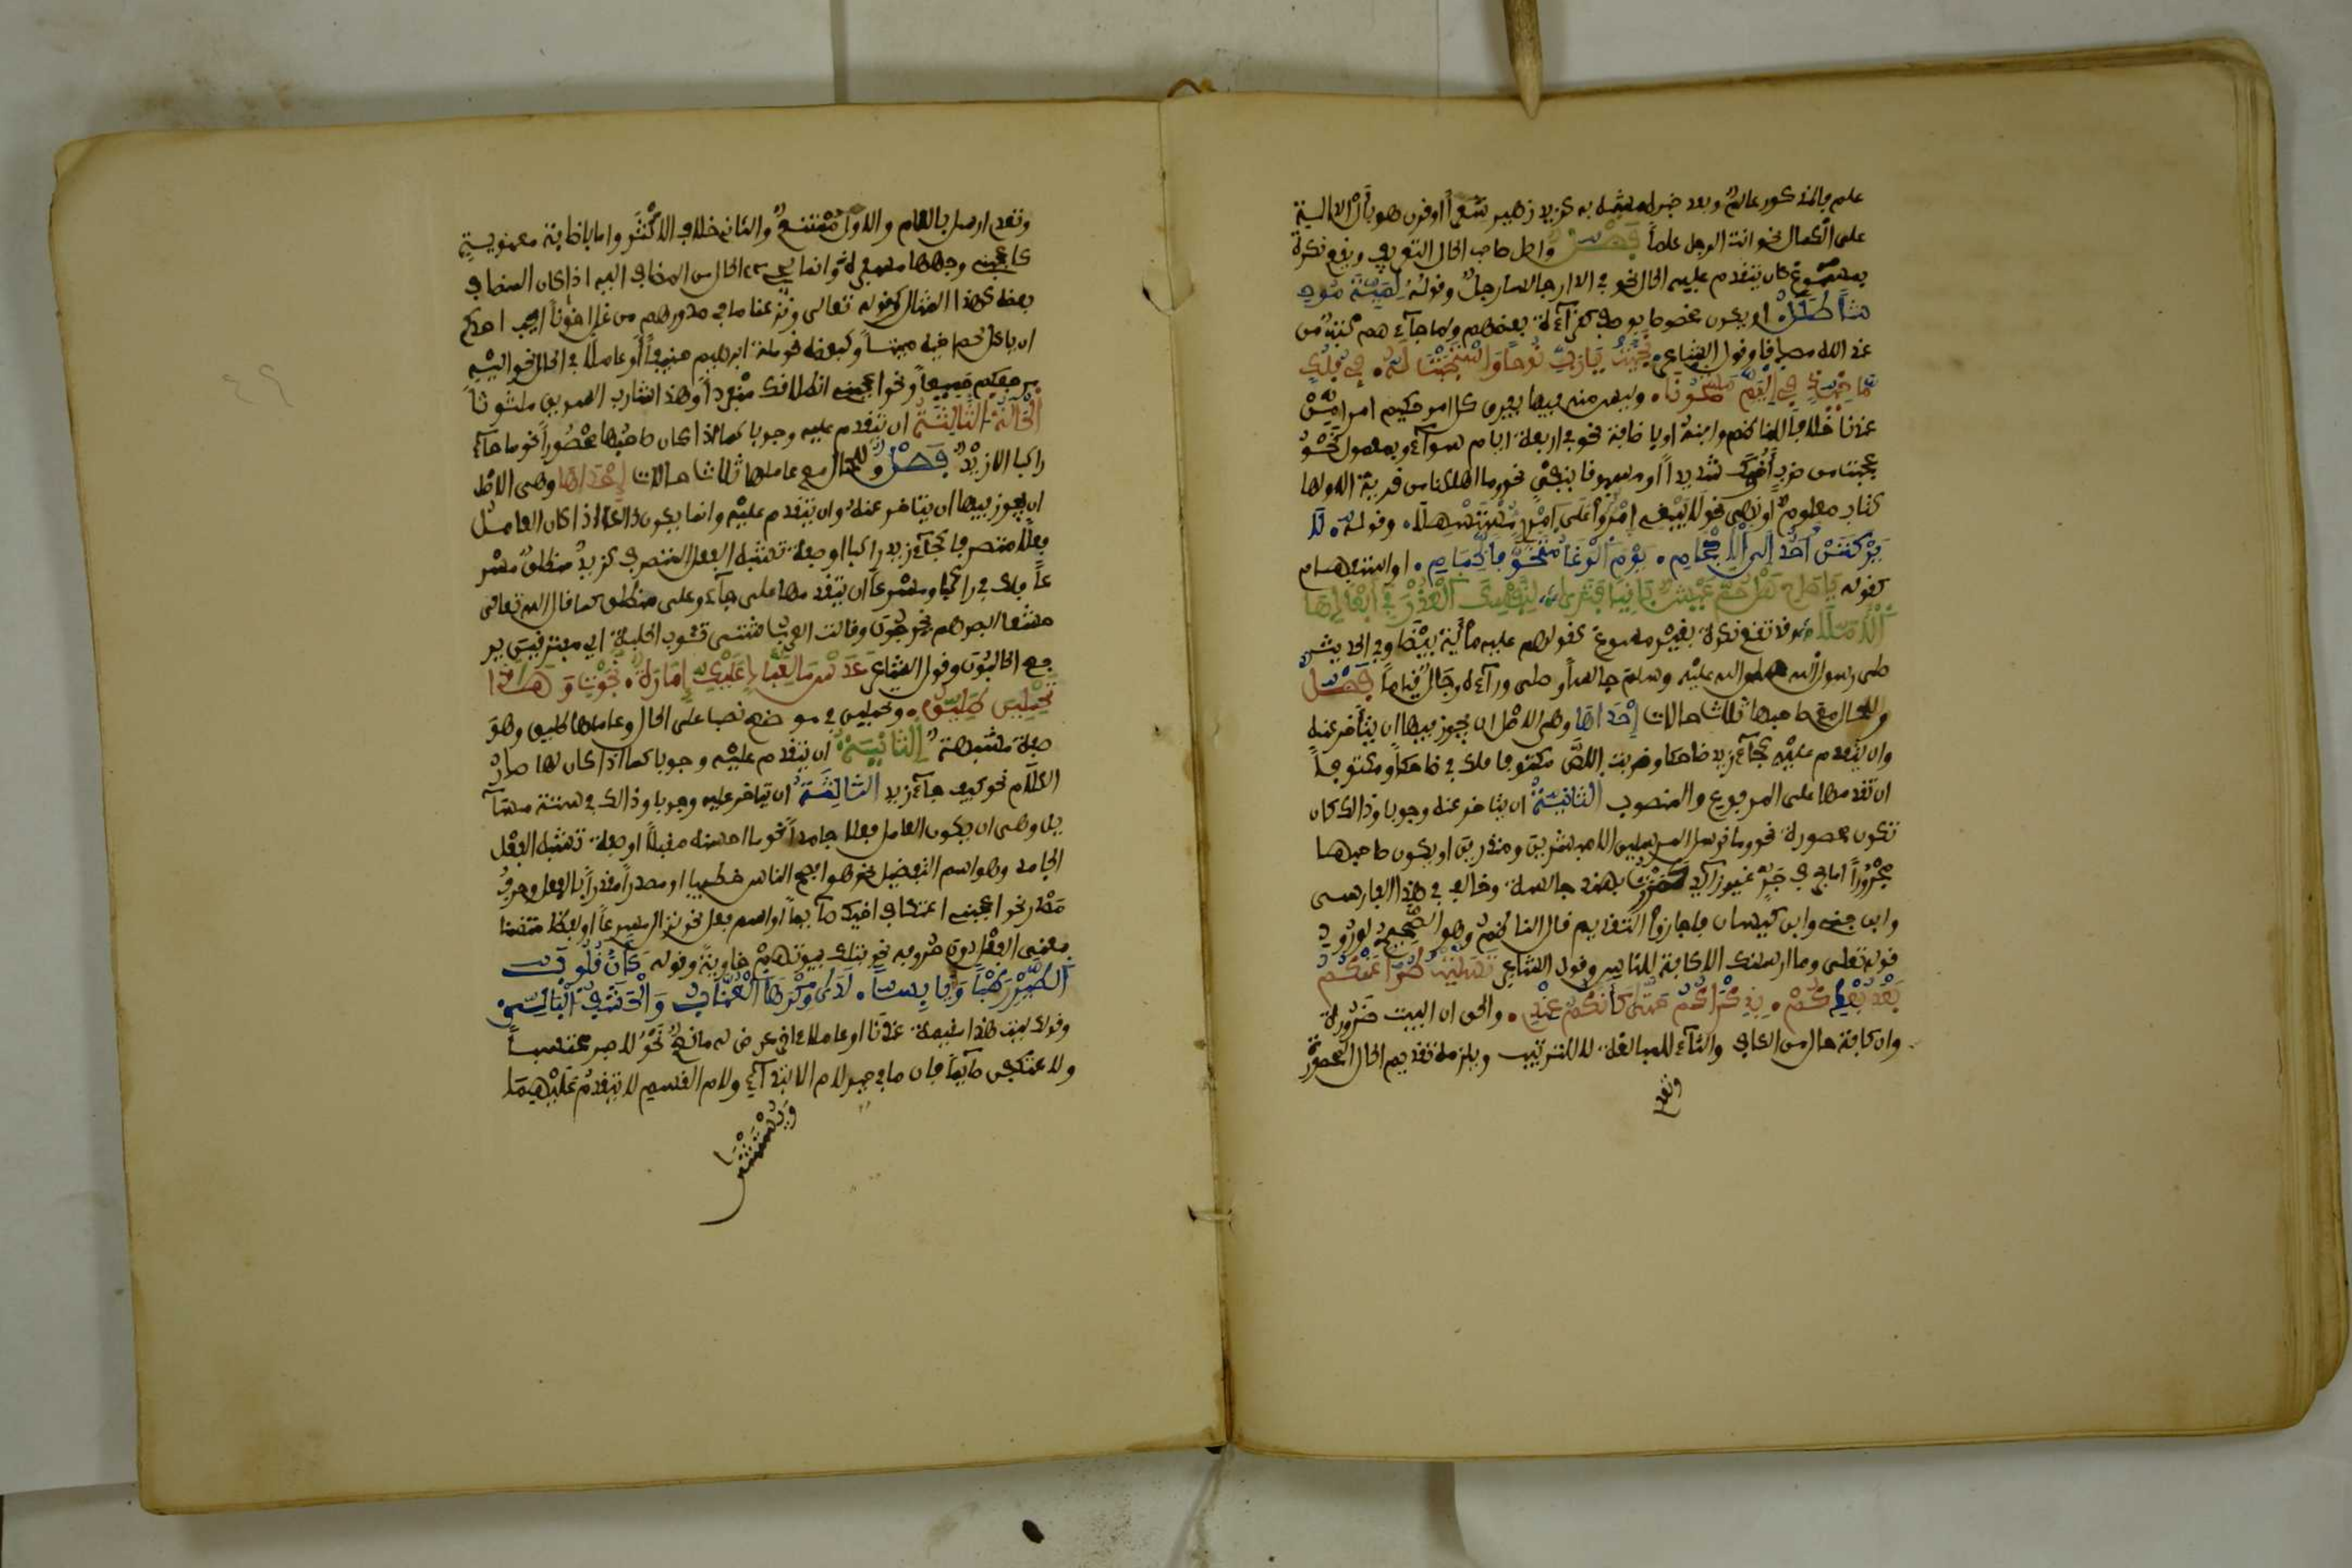 علم فالمذكور عالم وبعد خبر لمشبه به كزيد زهير شعرا او قرن هو بأل الدالة
على الكمال نحو انت الرجل علما فصل واصل صاحب الحال التعريف ويقع نكرة
بمسوغ كان يتقدم عليه الحال نحو في الدار جالسا رجل وقوله لمية موحـ
شا طلل او يكون مخصوصا بوصف كقرآءة بعضهم ولما جآءهم كتب من
عند الله مصدقا وقول الشاعر نجيت يا رب نوحا واستجبت له في فلك
ماخر في اليم مشحونا وليس منه فيها يفرق كل امر حكيم امرا من
عندنا خلافا للناظم وابنه او باضافة نحو في اربعة ايام سوآء وبمعمول نحو
عجبت من ضرب اخوك شديدا او مسبوقا بنفي نحو وما اهلكنا من قرية الا ولها
كتاب معلوم او نهي نحو لا يبغ امرؤ على امرئ مستسهلا وقوله لا
يركنن احد الى الاحجام يوم الوغا متخوفا لحمام او استفهام
كقوله يا صاح هل حم عيش باقيا فترى لنفسك العذر في ابعادها
الاملا وقد تقع نكرة بغير مسوغ كقولهم عليه مائة بيضا وفي الحديث
صلى رسول الله صلى الله عليه وسلم جالسا وصلى ورآءه رجال قياما فصل
وللحال مع صاحبها ثلاث حالات إحداها وهي الاصل ان يجوز فيها ان يتأخر عنه
وان يتقدم عليه كجآء زيد ضاحكا وضربت اللص مكتوفا فلك في ضاحكا ومكتوفا
ان تقدمها على المرفوع والمنصوب الثانية ان يتأخر عنه وجوبا وذالك كان
تكون محصورة نحو وما نرسل المرسلين الا مبشرين ومنذرين او يكون صاحبها
مجرورا اما بحرف جر غير زآئد كمررت بهند جالسة وخالف في هذا الفارسي
وابن جني وابن كيسان فاجازوا التقديم قال الناظم وهو الصحيح لوروده
قوله تعلى وما ارسلنك الا كافة للناس وقول الشاعر تسليت طرا عنكم
بعد بعدكم بذكراكم حتى كأنكم عندي والحق ان البيت ضرورة
وان كافة حال من الكاف والتآء للمبالغة لا للتأنيث ويلزمه تقديم الحال المحصورة
وتعد
وتعدي ارسل باللام والاول ممتنع والثاني خلاف الاكثر واما باضافة معنوية
كاعجبني وجهها مسفرة وانما يجيء الحال من المضاف اليه اذا كان المضاف
بعضه كهذا المثال وكقوله تعالى ونزعنا ما في صدورهم من غل اخونا ايحب احدكم
ان ياكل لحم اخيه ميتا وكبعضه نحو ملة ابراهيم حنيفا أو عاملا في الحال نحو اليه
مرجعكم جميعا ونحو اعجبني انطلاقك منفردا وهذا شارب السويق ملتوتا
الحالة الثالثة ان تتقدم عليه وجوبا كما اذا كان صاحبها محصورا نحو ما جآء
راكبا الا زيد فصل وللحال مع عاملها ثلاث حالات إحداها وهي الاصل
ان يجوز فيها ان يتأخر عنه وان يتقدم عليه وانما يكون ذالك اذا كان العامل
فعلا متصرفا كجآء زيد راكبا او صفة تشبه الفعل المتصرف كزيد منطلق مسر
عا فلك في راكبا ومسرعا ان تقدمها على جآء وعلى منطلق كما قال الله تعالى
خشعا ابصرهم يخرجون وقالت العرب شتى تئوب الحلبة اي متفرقين ير
جع الحالبون وقول الشاعر عدس ما لعباد عليك إمارة نجوت وهذا
تحملين طليق وتحملين في موضع نصب على الحال وعاملها طليق وهو
صفة مشبهة الثانية ان تتقدم عليه وجوبا كما اذا كان لها صدر
الكلام نحو كيف جآء زيد الثالثة ان تتأخر عليه وجوبا وذالك في ستة مسآ
ئل وهي ان يكون العامل فعلا جامدا نحو ما احسنه مقبلا او صفة تشبه الفعل
الجامد وهو اسم التفضيل نحو هو افصح الناس خطيبا او مصدرا مقدرا بالفعل وحرف
مصدر نحو اعجبني اعتكاف اخيك صآئما او اسم فعل نحو نزال مسرعا او لفظا متضمنا
معنى الفعل دون حروفه نحو فتلك بيوتهم خاوية وقوله كأن قلوب
الطير رطبا ويابسا لدى وكرها العناب والحشف البالي
وقولك ليت هندا مقيمة عندنا او عاملا اخر عرض له مانع نحو لاصبر محتسبا
ولاعتكفن صآئما فان ما في حيز لام الابتدآء ولام القسم لا يتقدم عليهما
ويستثنى